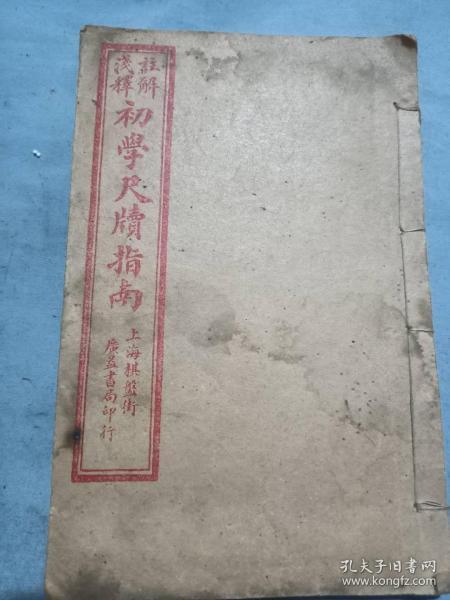 註解
淺釋
初學尺牘指南
上海棋盤街
廣益書局印行
孔夫子旧书网
www.kongfz.com